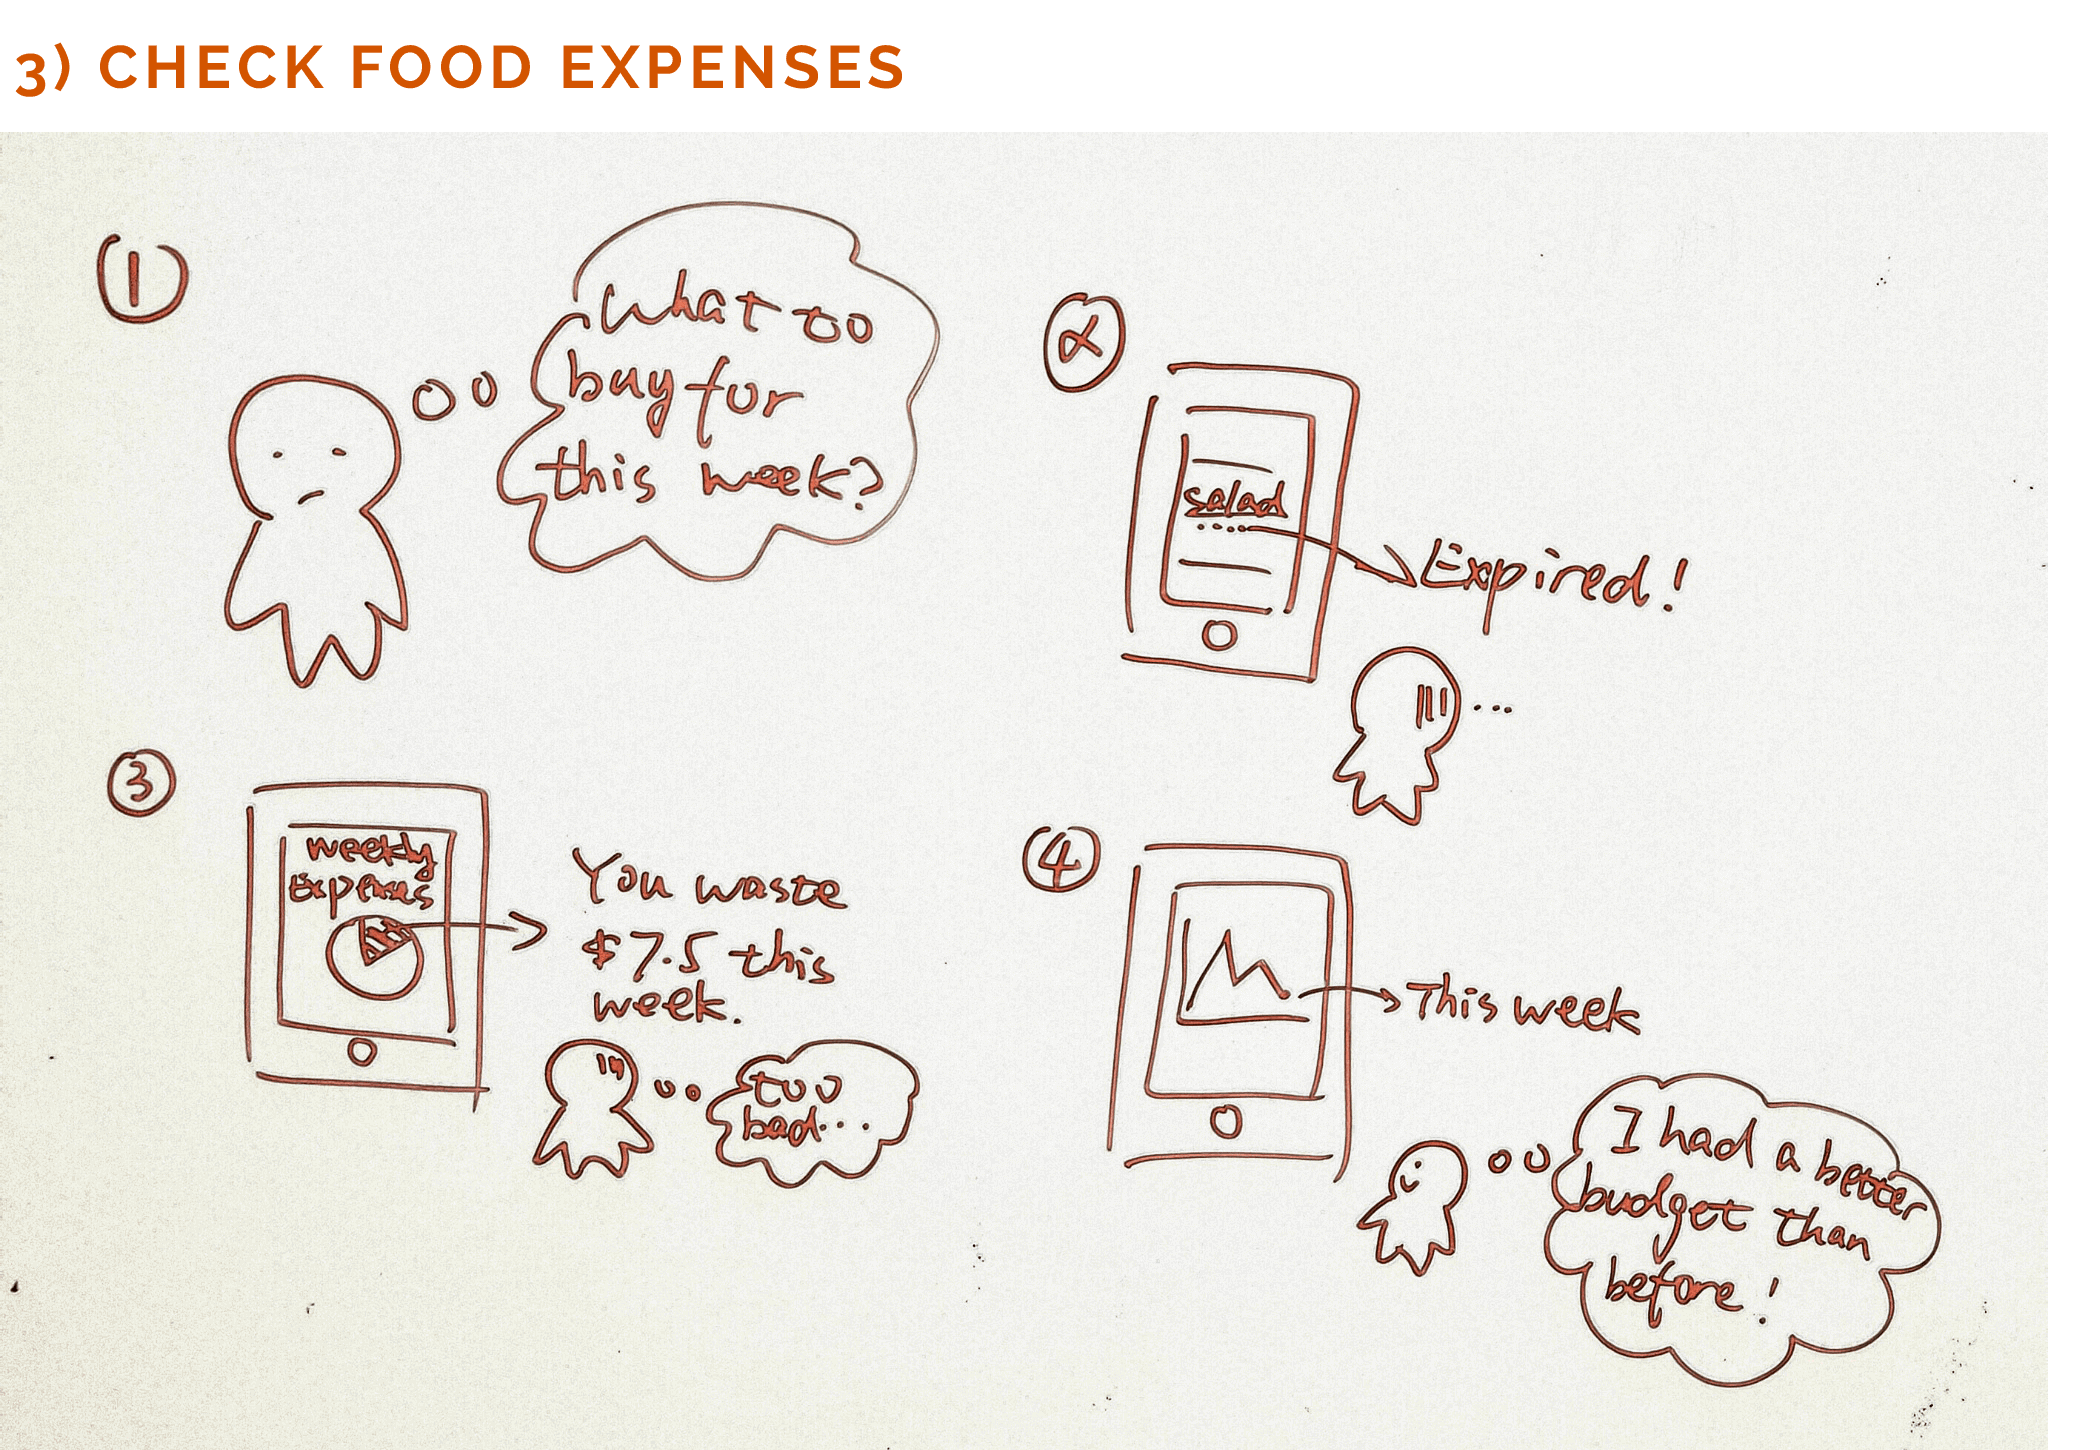 3) CHECK FOOD EXPENSES
1
What to
buy for
this week?
2
salad
....
Expired!
...
3
weekly
Expenses
You waste
$7.5 this
week.
too
bad...
4
This week
I had a better
budget than
before!